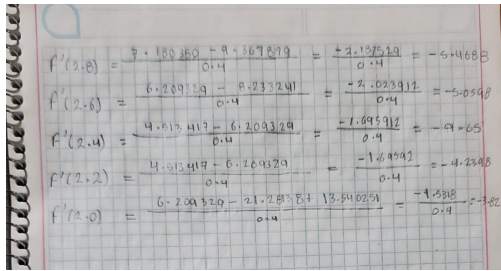 f'(2.8) = 7.180350 - 9.367879 / 0.4 = -2.187529 / 0.4 = -5.4688
f'(2.6) = 6.209329 - 8.233241 / 0.4 = -2.023912 / 0.4 = -5.0598
f'(2.4) = 4.513417 - 6.209329 / 0.4 = -1.695912 / 0.4 = -4.65
f'(2.2) = 4.513417 - 6.209329 / 0.4 = -1.69592 / 0.4 = -4.2398
f'(2.0) = 6.209329 - 21.281387 13.540251 / 0.4 = -1.5318 / 0.4 = -3.82